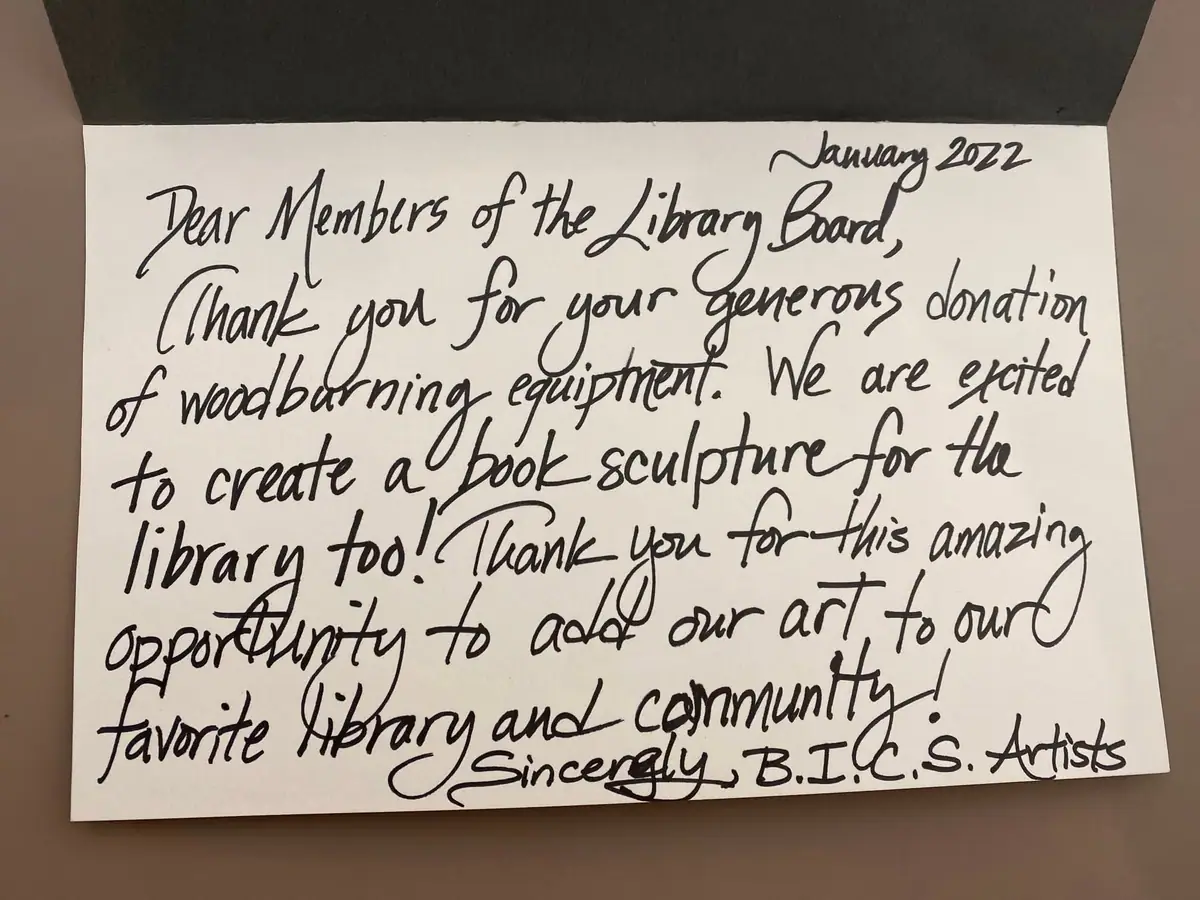 January 2022
Dear Members of the Library Board,
Thank you for your generous donation
of woodburning equiptment. We are excited
to create a book sculpture for the
library too! Thank you for this amazing
opportunity to add our art to our
favorite library and community!
Sincerely, B.I.C.S. Artists